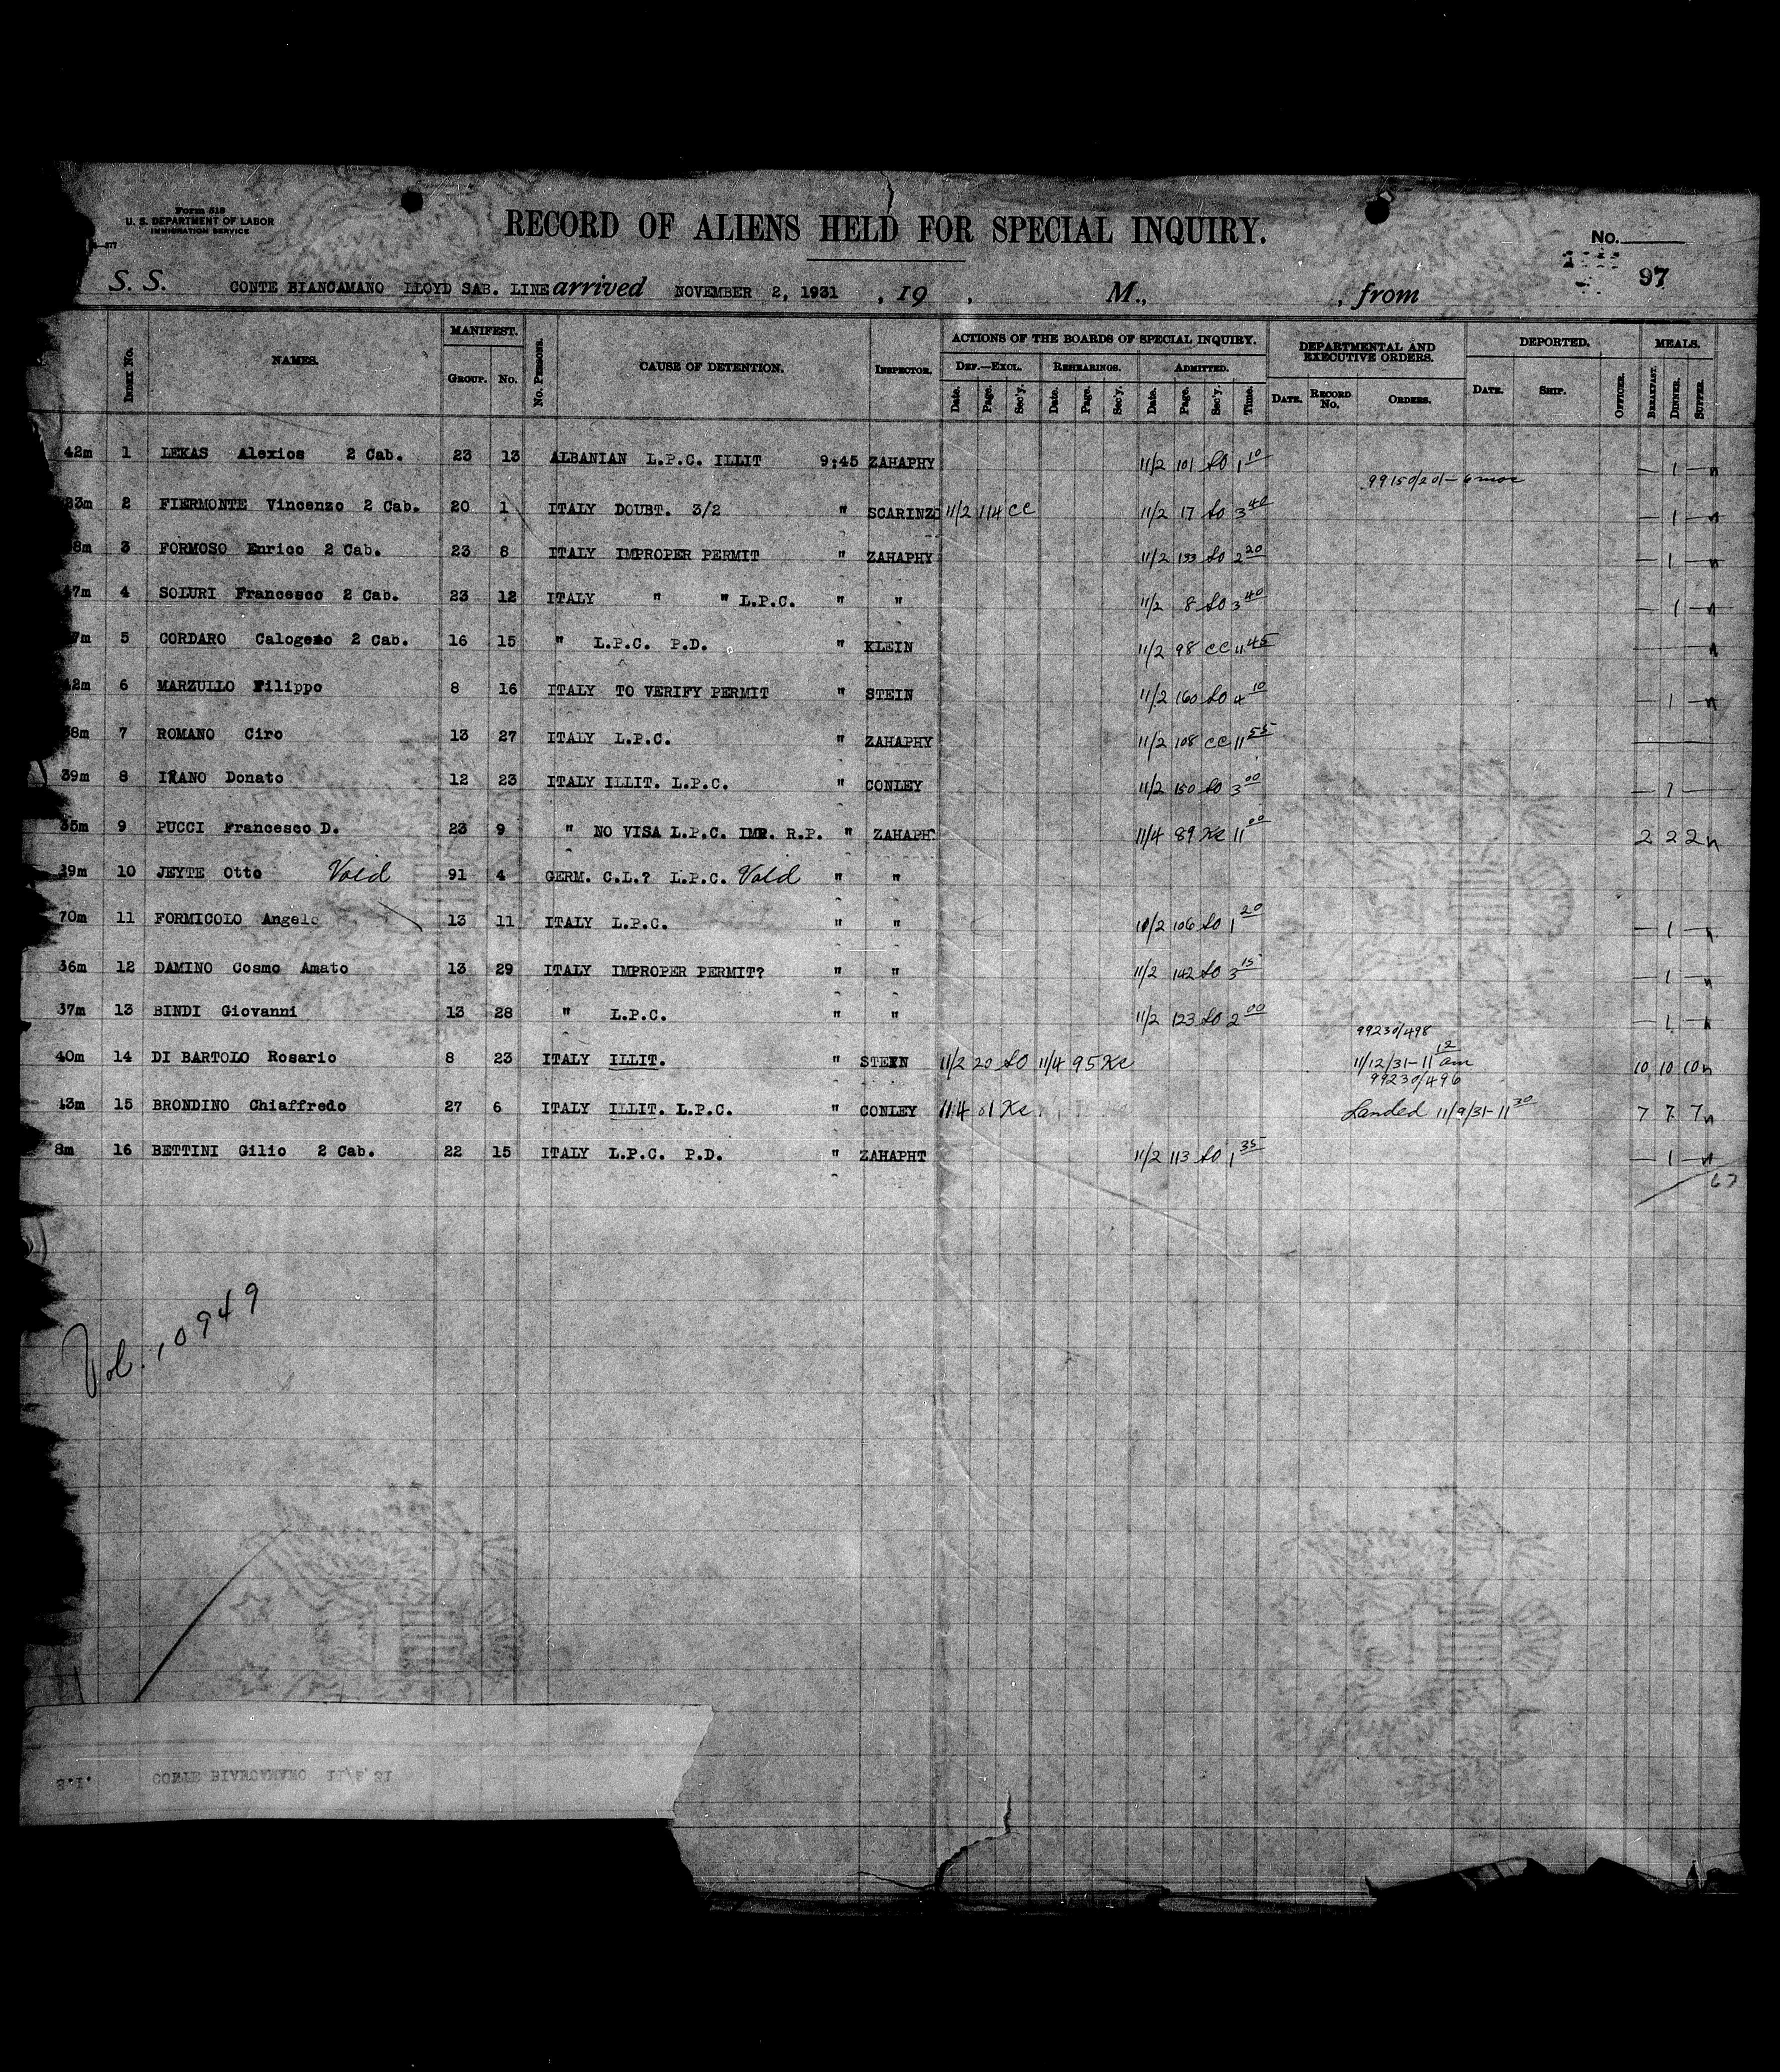 Form 518
U. S. DEPARTMENT OF LABOR
IMMIGRATION SERVICE
RECORD OF ALIENS HELD FOR SPECIAL INQUIRY.
No.
97
S. S. CONTE BIANCAMANO LLOYD SAB. LINE arrived NOVEMBER 2, 1931 , 19 , M., , from
INDEX No. NAMES. MANIFEST. GROUP. No. No. PERSONS. CAUSE OF DETENTION. INSPECTOR. ACTIONS OF THE BOARDS OF SPECIAL INQUIRY. DEPARTMENTAL AND EXECUTIVE ORDERS. DEPORTED. MEALS.
DEF.—EXCL. REHEARINGS. ADMITTED.
Date. Page. Sec'y. Date. Page. Sec'y. Date. Page. Sec'y. Time. DATE. RECORD No. ORDERS. DATE. SHIP. OFFICER. BREAKFAST. DINNER. SUPPER.
42m 1 LEKAS Alexios 2 Cab. 23 13 ALBANIAN L.P.C. ILLIT 9:45 ZAHAPHY 11/2 101 SO 1 10 — 1 — n
99150/201 - 6 mos
33m 2 FIERMONTE Vincenzo 2 Cab. 20 1 ITALY DOUBT. 3/2 " SCARINZO 11/2 114 CC 11/2 17 SO 3 40 — 1 — n
8m 3 FORMOSO Enrico 2 Cab. 23 8 ITALY IMPROPER PERMIT " ZAHAPHY 11/2 133 SO 2 20 — 1 — n
47m 4 SOLURI Francesco 2 Cab. 23 12 ITALY " " L.P.C. " " 11/2 8 SO 3 40 — 1 — n
7m 5 CORDARO Calogero 2 Cab. 16 15 " L.P.C. P.D. " KLEIN 11/2 98 CC 11 45 n
42m 6 MARZULLO Filippo 8 16 ITALY TO VERIFY PERMIT " STEIN 11/2 160 SO 4 10 — 1 — n
38m 7 ROMANO Ciro 13 27 ITALY L.P.C. " ZAHAPHY 11/2 108 CC 11 55
39m 8 IRANO Donato 12 23 ITALY ILLIT. L.P.C. " CONLEY 11/2 150 SO 3 00 — 1 —
35m 9 PUCCI Francesco D. 23 9 " NO VISA L.P.C. IMR. R.P. " ZAHAPH 11/4 89 Ke 11 00 2 2 2 n
39m 10 JEYTE Otto Void 91 4 GERM. C.L.? L.P.C. Void " "
70m 11 FORMICOLO Angelo 13 11 ITALY L.P.C. " " 10/2 106 SO 1 20 — 1 — n
36m 12 DAMINO Cosmo Amato 13 29 ITALY IMPROPER PERMIT? " " 11/2 142 SO 3 15 — 1 — n
37m 13 BINDI Giovanni 13 28 " L.P.C. " " 11/2 123 SO 2 00 — 1 — n
99230/498
40m 14 DI BARTOLO Rosario 8 23 ITALY ILLIT. " STEIN 11/2 20 SO 11/4 95 Ke 11/12/31 - 11 12 am 10 10 10 n
99230/496
43m 15 BRONDINO Chiaffredo 27 6 ITALY ILLIT. L.P.C. " CONLEY 11/4 Ke Landed 11/9/31 - 11 30 7 7 7 n
8m 16 BETTINI Gilio 2 Cab. 22 15 ITALY L.P.C. P.D. " ZAHAPHT 11/2 113 SO 1 35 — 1 — n
Vol. 10949
S.I. CONTE BIANCAMANO